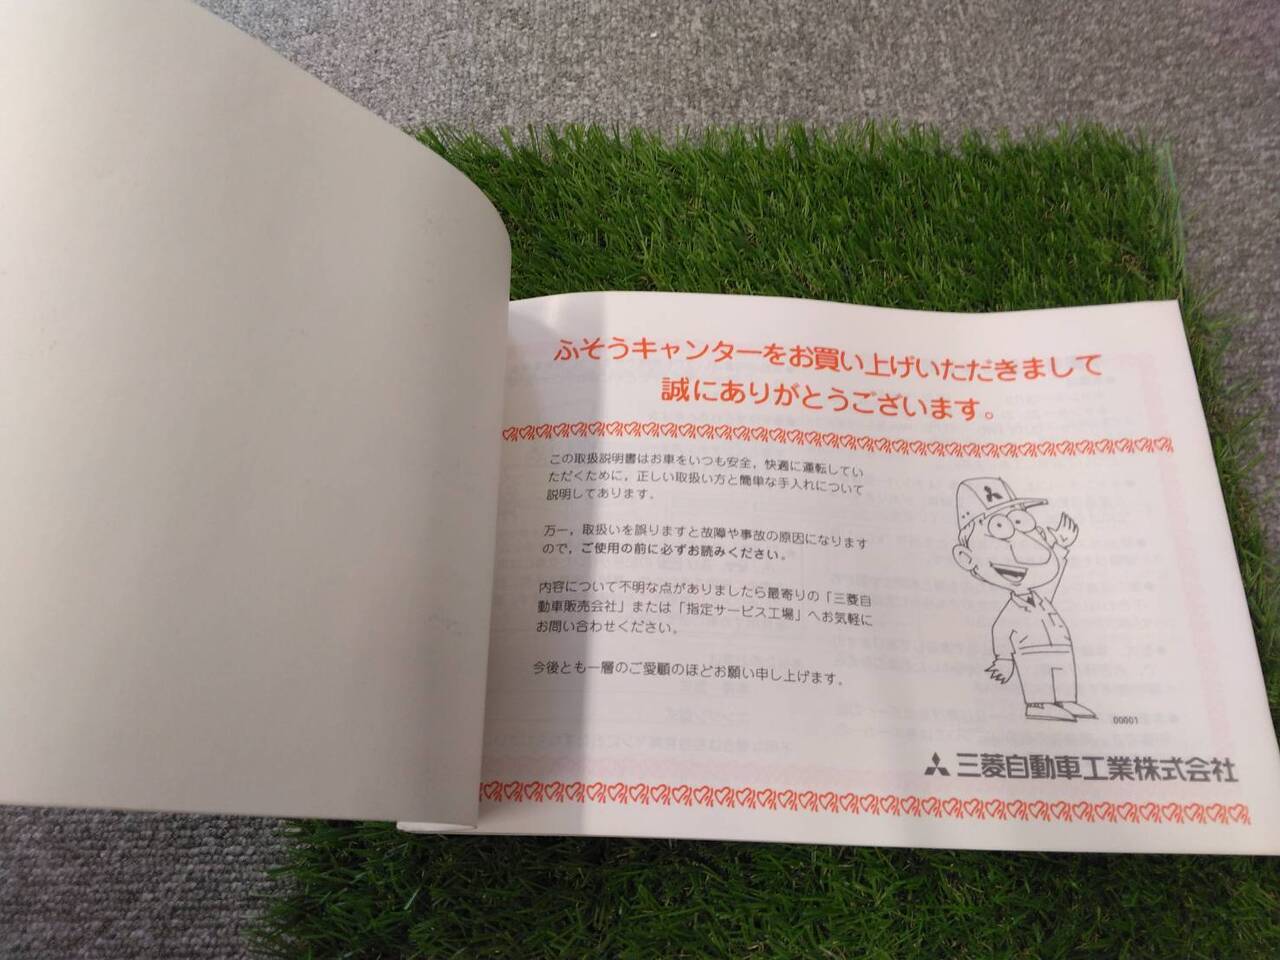 ふそうキャンターをお買い上げいただきまして
誠にありがとうございます。
この取扱説明書はお車をいつも安全，快適に運転してい
ただくために，正しい取扱い方と簡単な手入れについて
説明してあります。
万一，取扱いを誤りますと故障や事故の原因になります
ので，ご使用の前に必ずお読みください。
内容について不明な点がありましたら最寄りの「三菱自
動車販売会社」または「指定サービス工場」へお気軽に
お問い合わせください。
今後とも一層のご愛顧のほどお願い申し上げます。
00001
三菱自動車工業株式会社